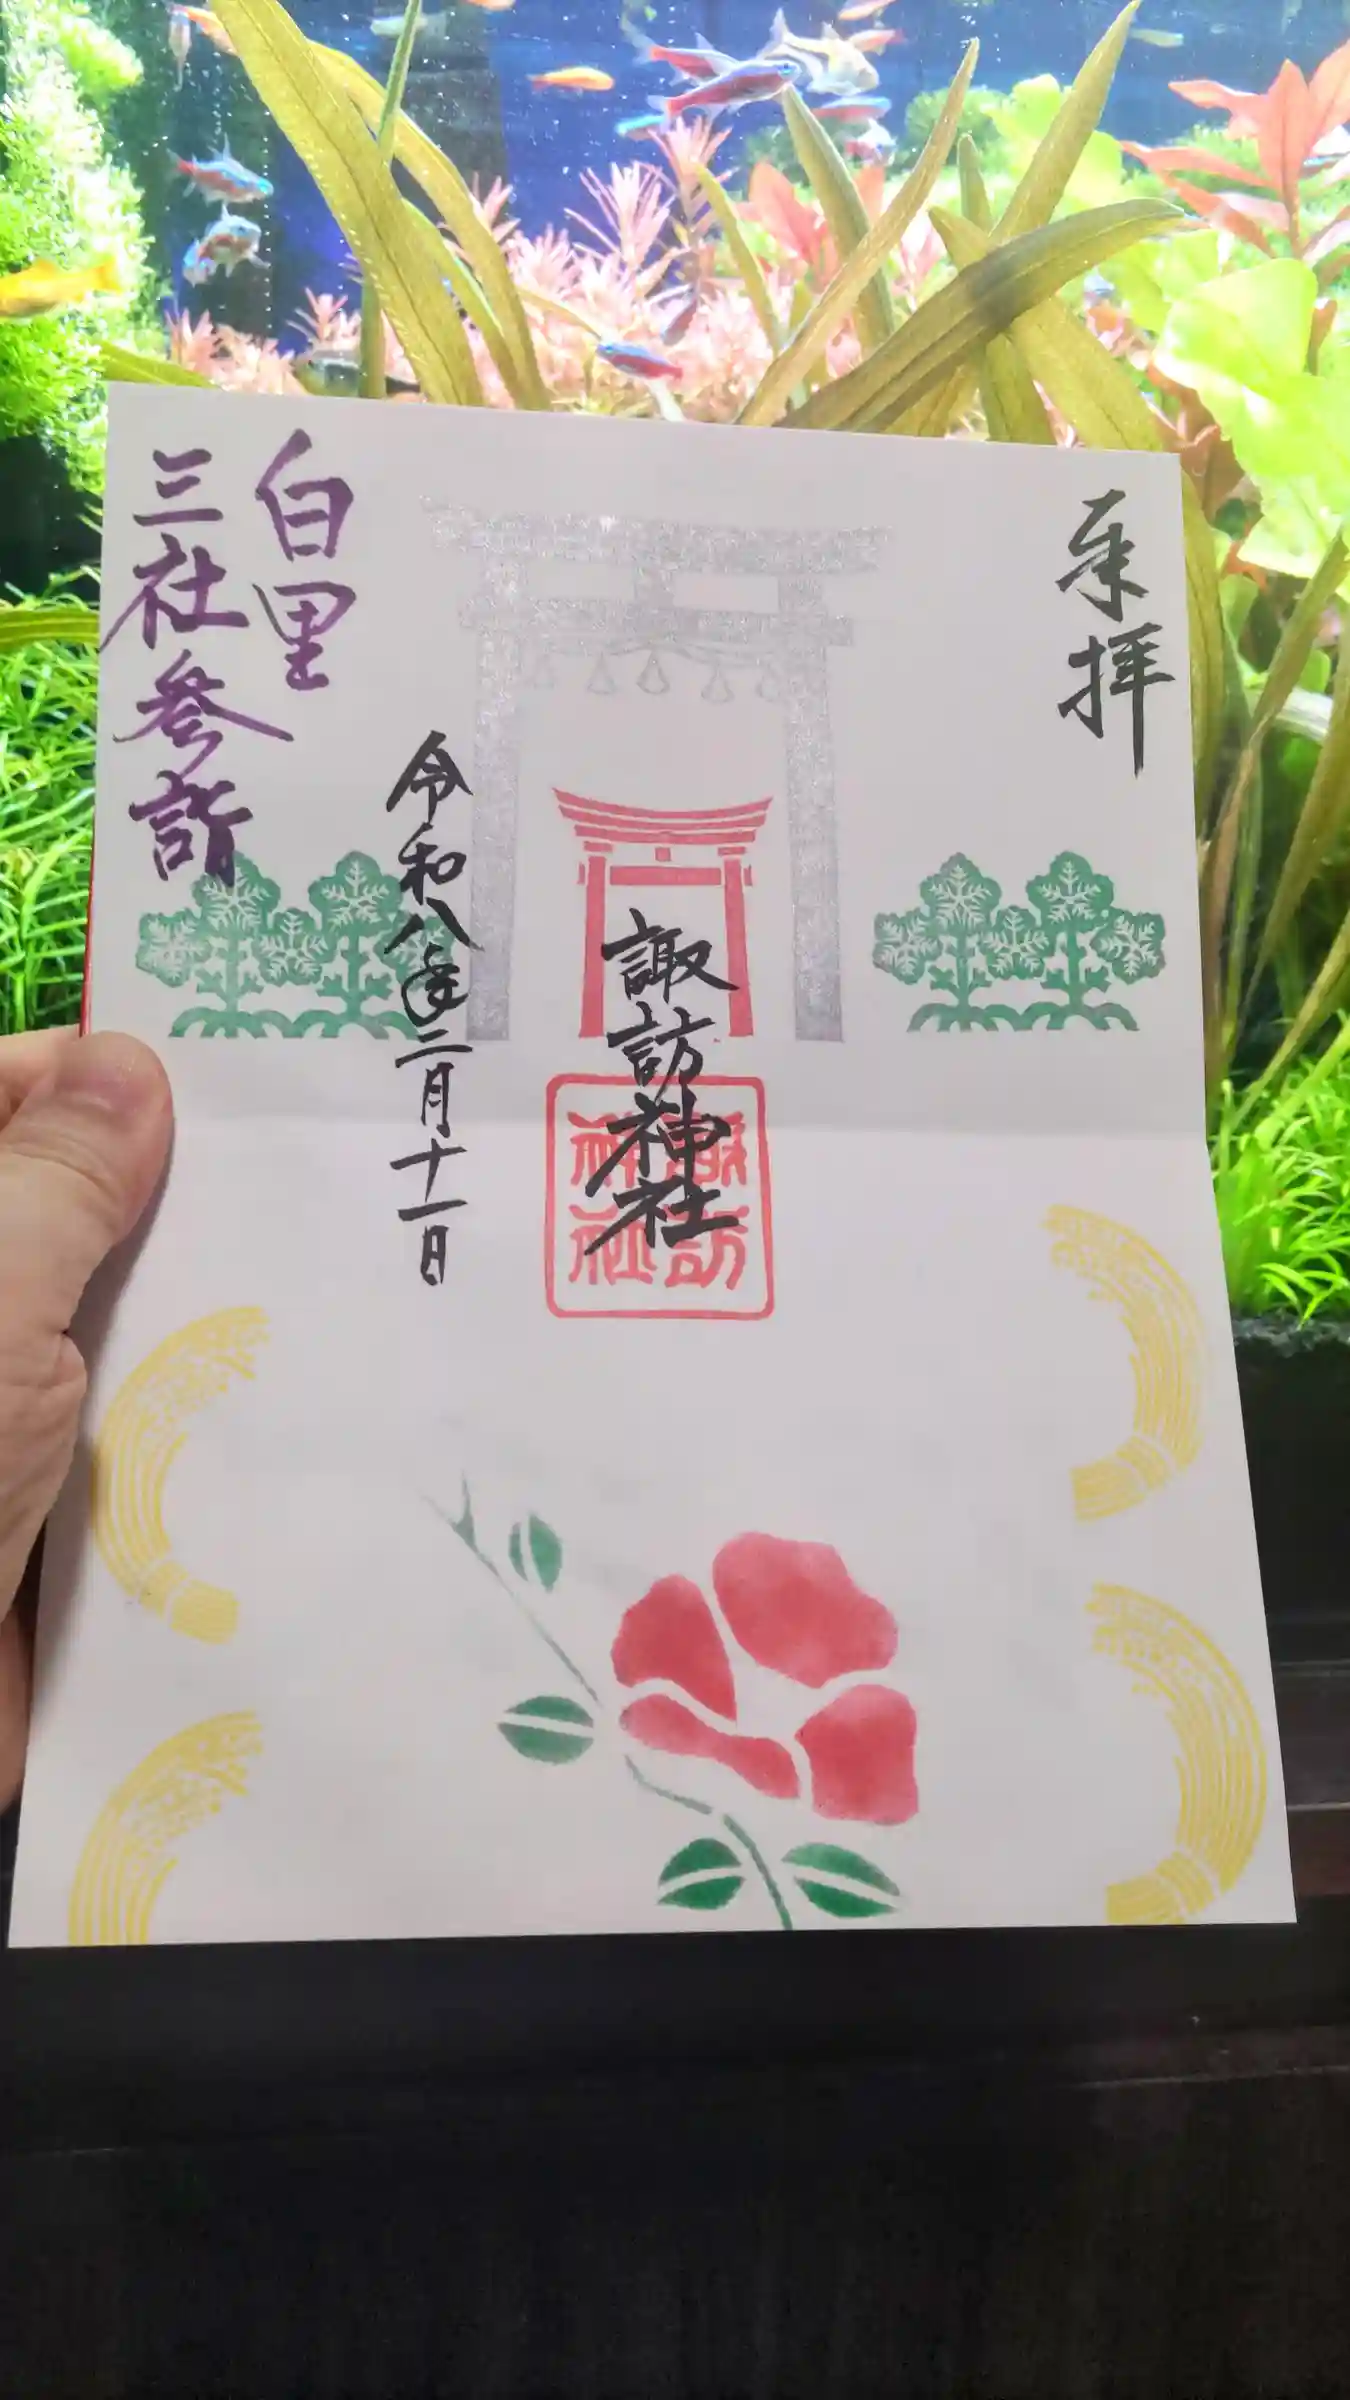 奉拝
諏訪神社
諏訪
神社
令和八年二月十一日
白里
三社参詣